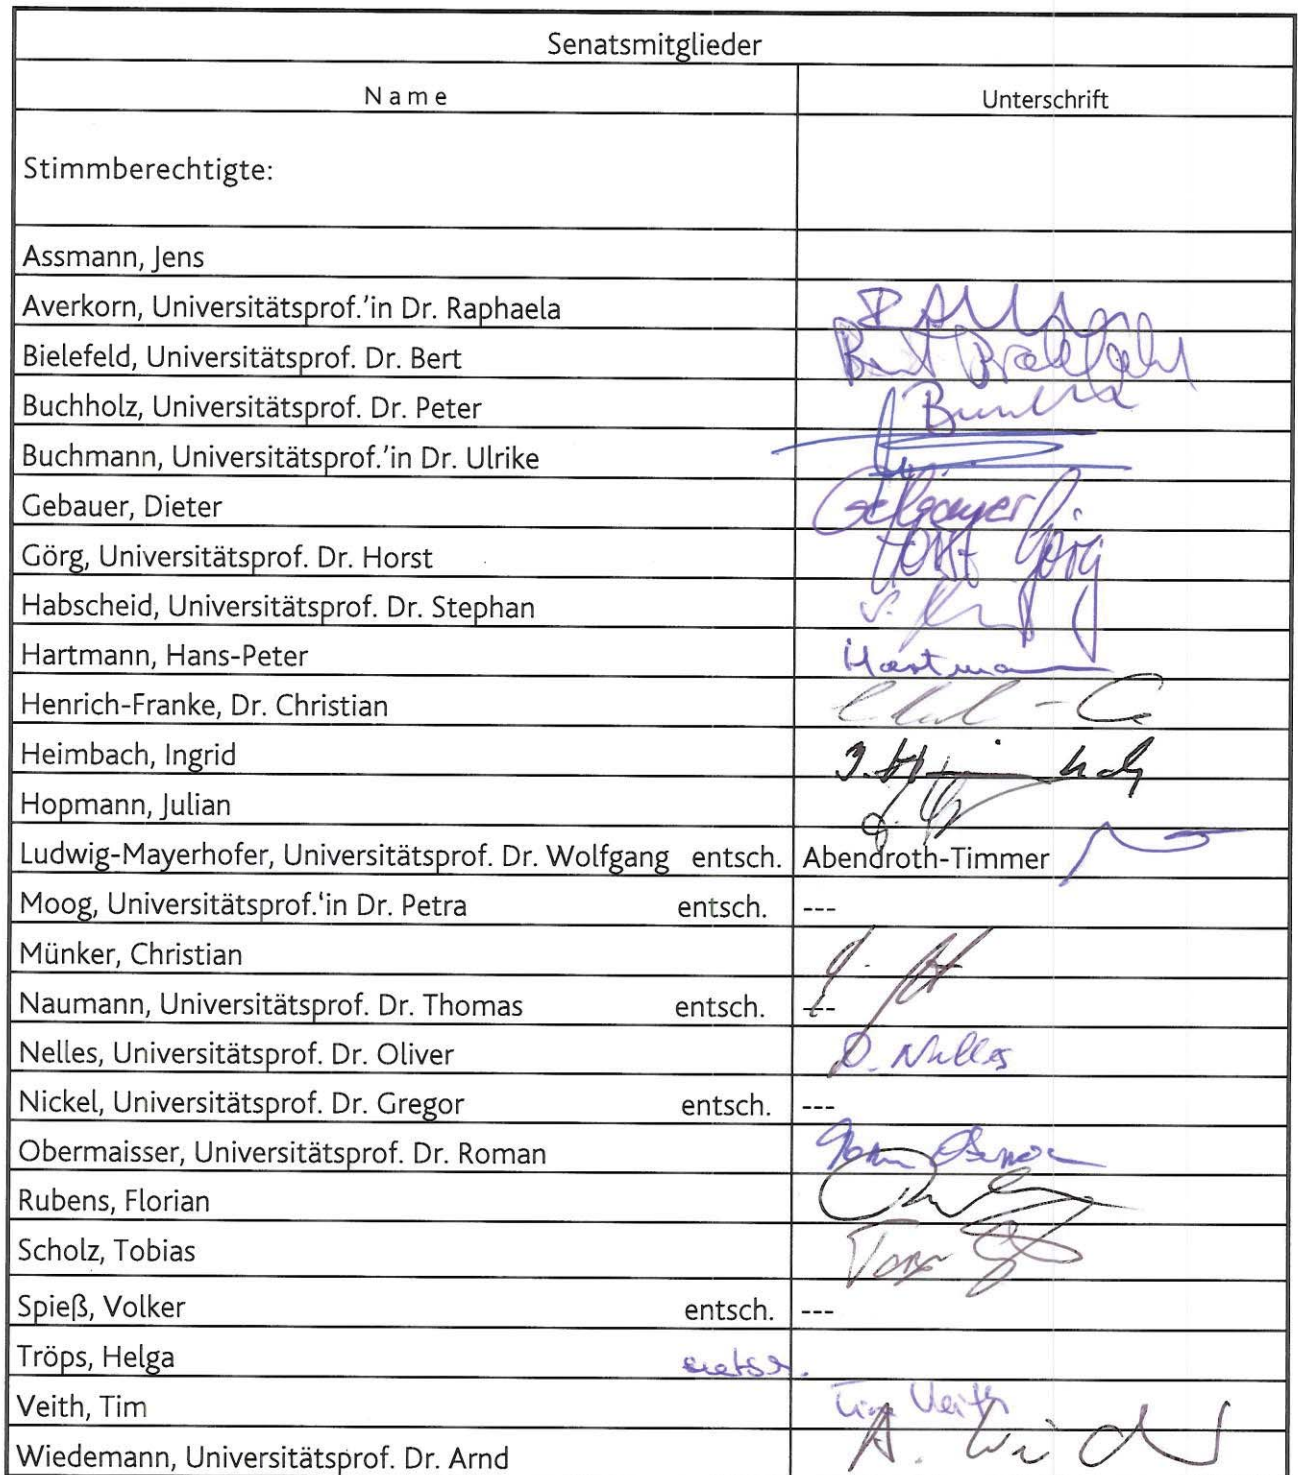 Senatsmitglieder
Name Unterschrift
Stimmberechtigte:
Assmann, Jens
Averkorn, Universitätsprof.'in Dr. Raphaela
Bielefeld, Universitätsprof. Dr. Bert Bert Bielefeld
Buchholz, Universitätsprof. Dr. Peter
Buchmann, Universitätsprof.'in Dr. Ulrike
Gebauer, Dieter Gebauer
Görg, Universitätsprof. Dr. Horst Horst Görg
Habscheid, Universitätsprof. Dr. Stephan
Hartmann, Hans-Peter Hartmann
Henrich-Franke, Dr. Christian
Heimbach, Ingrid
Hopmann, Julian
Ludwig-Mayerhofer, Universitätsprof. Dr. Wolfgang entsch. Abendroth-Timmer
Moog, Universitätsprof.'in Dr. Petra entsch. ---
Münker, Christian
Naumann, Universitätsprof. Dr. Thomas entsch. ---
Nelles, Universitätsprof. Dr. Oliver O. Nelles
Nickel, Universitätsprof. Dr. Gregor entsch. ---
Obermaisser, Universitätsprof. Dr. Roman
Rubens, Florian
Scholz, Tobias
Spieß, Volker entsch. ---
Tröps, Helga entsch.
Veith, Tim Tim Veith
Wiedemann, Universitätsprof. Dr. Arnd